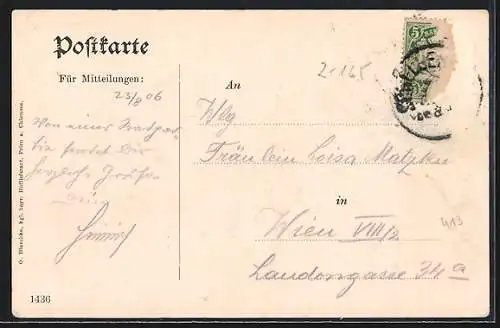 Postkarte
Für Mitteilungen:
23/8 06
Von einer Radpar-
tie sendet Dir
herzliche Grüße
Dein
Heinrich
O. Blaschke, kgl. bayr. Hoflieferant, Prien a. Chiemsee.
1436
5
21165
An
Wlg
Fräulein Loisa Matzku
in
Wien VIII/2
413
Laudongasse 34a